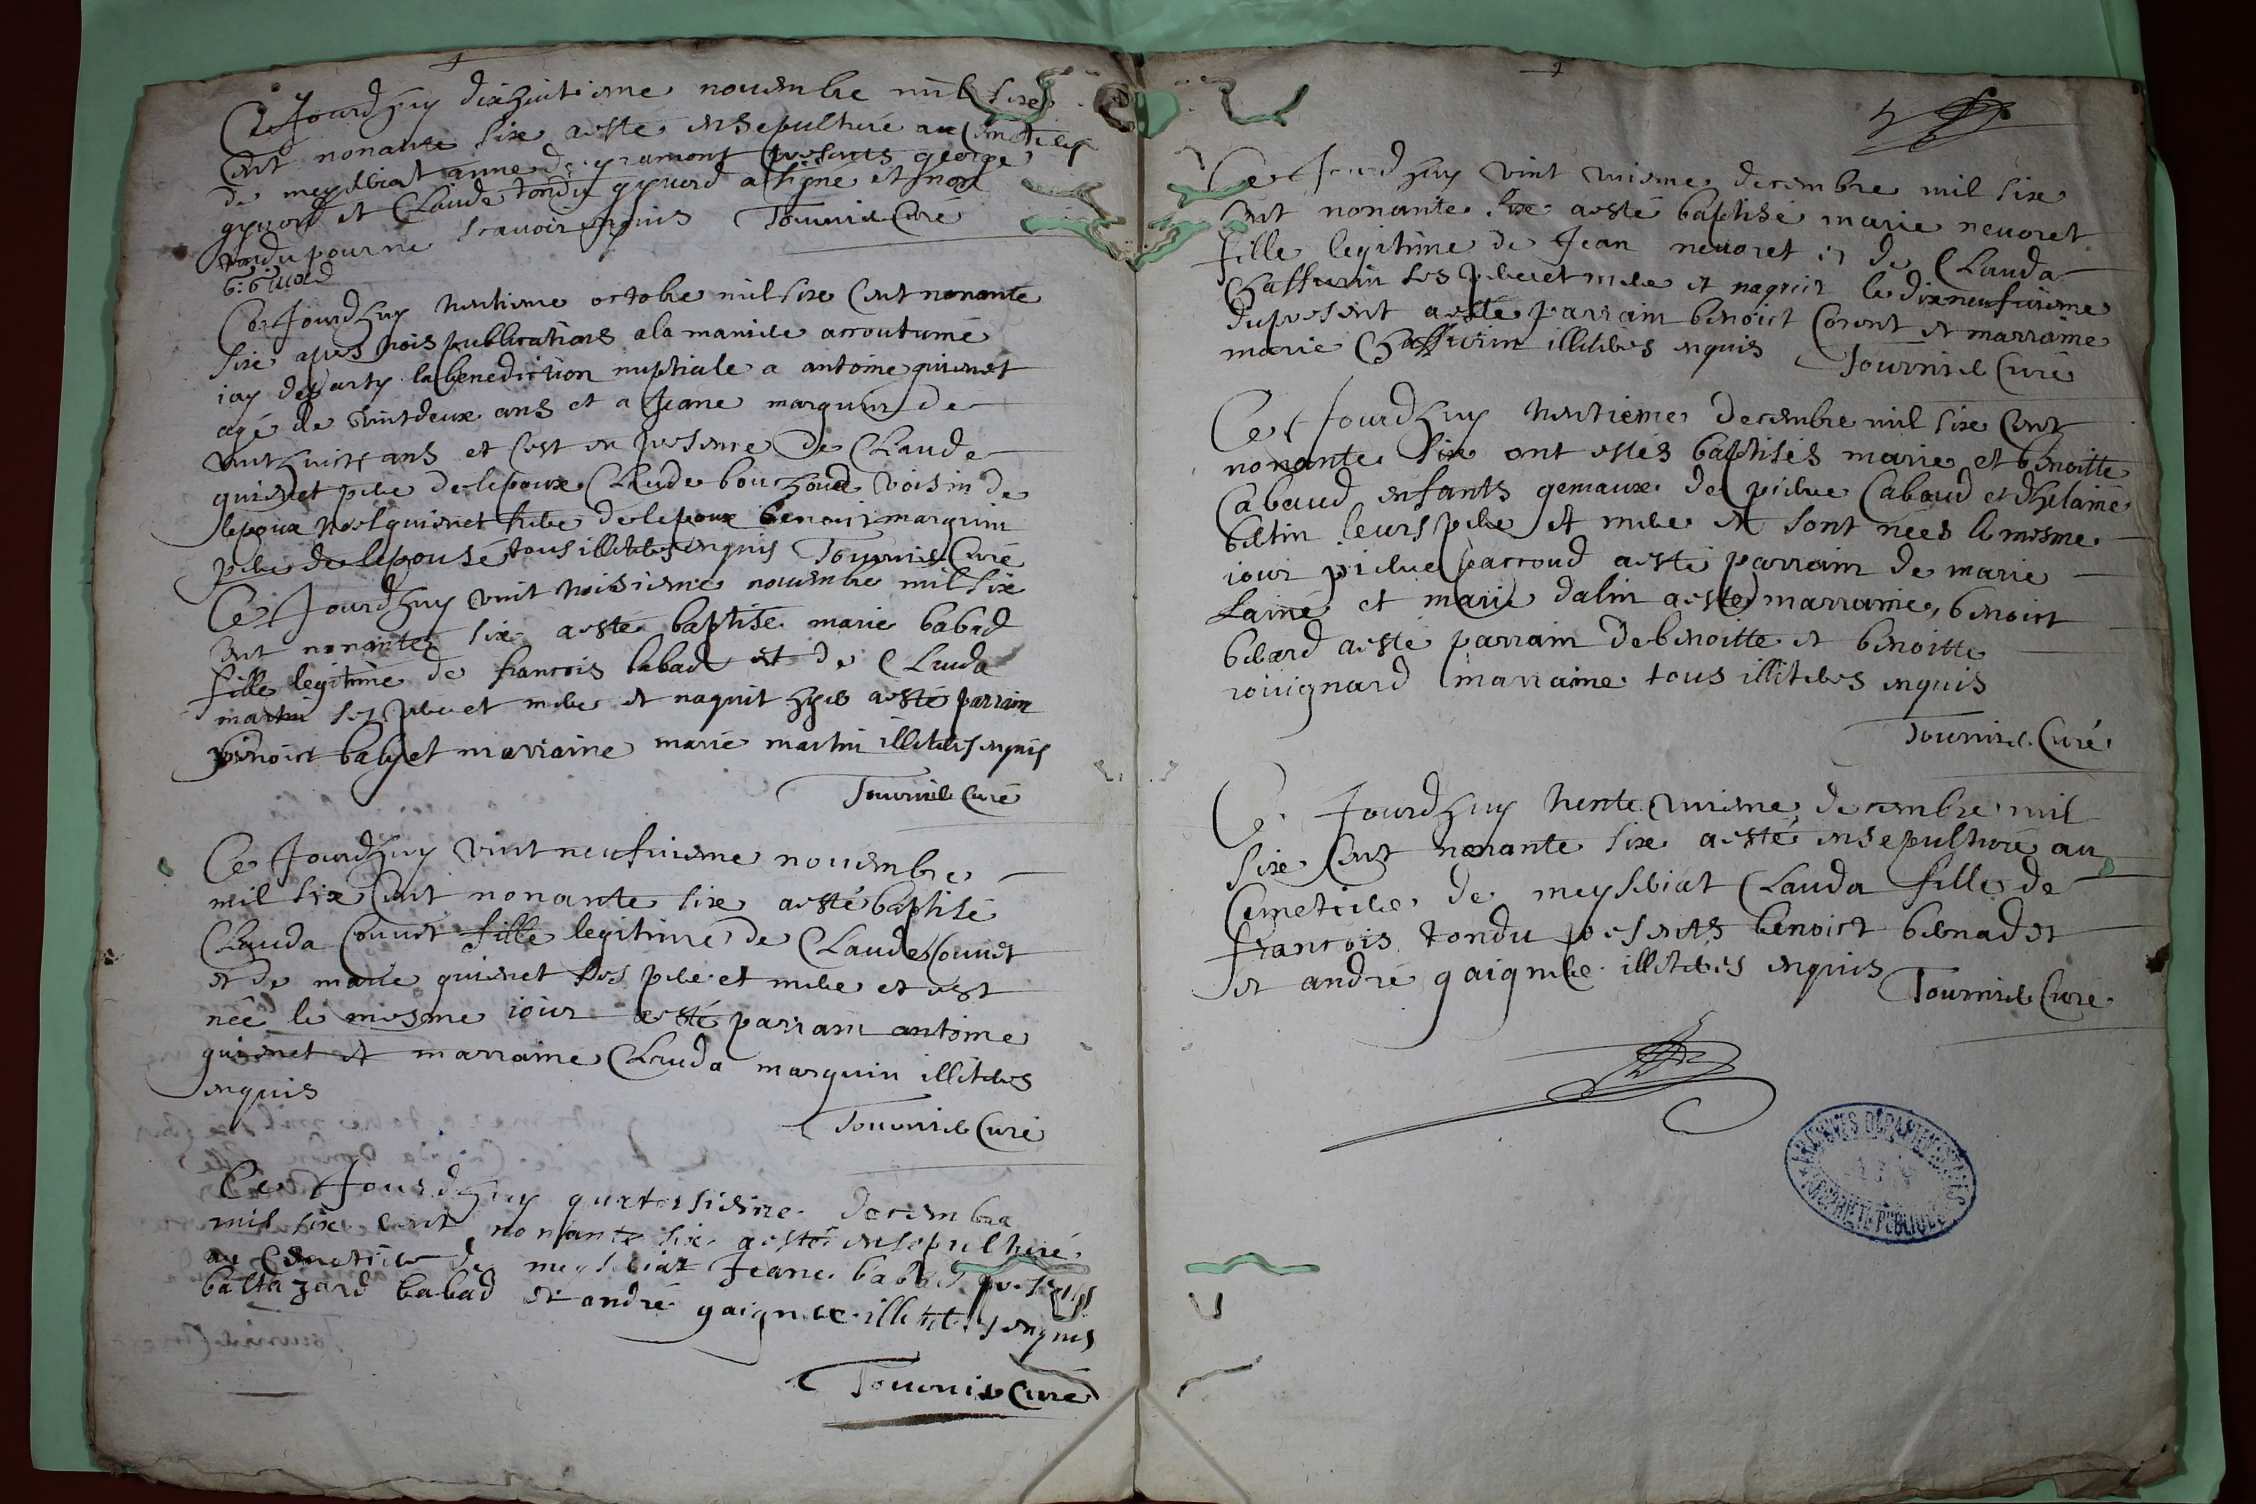 Ce Jourdhuy dixhuitieme novembre mil six
cent nonante six a esté ensepulturé au cimetiere
de meyseriat anne de gramont presents george
gyuord et Claude tondu gyuord a signé et non
tondu pour ne scavoir enquis Tournier Curé
G: Giuord
Ce Jourdhuy trentieme octobre mil six cent nonante
six apres trois publications a la maniere accoutumé
iay departy la benediction nuptiale a antoine guienet
agé de vint deux ans et a Jeane marguin de
vint huict ans et cest en presence de Claude
guienet pere de lepoux Claude bouchoud voisin de
lepoux noel guienet frere de lepoux benoist marguin
pere de lepousé tous illiteres enquis Tournier Curé
Ce Jourdhuy vint troisieme novembre mil six
cent nonante six a esté baptisé marie babad
fille legitime de francois babad et de Clauda
martin ses pere et mere et naquit hyer a esté parrain
benoict baby et marraine marie martin illiteres enquis
Tournier Curé
Ce Jourdhuy vint neufvieme novembre
mil six cent nonante six a esté baptisé
Clauda Convert fille legitime de Claude Convert
et de marie guienet ses pere et mere et est
née le mesme iour a esté parrain antoine
guienet et marraine Clauda marguin illiteres
enquis
Tournier Curé
Ce Jourdhuy quatorsieme decembre
mil six cent nonante six a esté ensepulturé
au cimetiere de meyseriat Jeane babad presents
baltazard babad et andré gaignere illiteres enquis
Tournier Curé
Ce Jourdhuy vint unieme decembre mil six
cent nonante six a esté baptisé marie nevoret
fille legitime de Jean nevoret et de Clauda
Chaffurin ses pere et mere et naquit le dixneufvieme
du present a esté parrain benoict Corent et marraine
marie Chaffurin illiteres enquis Tournier Curé
Ce Jourdhuy trentieme decembre mil six cent
nonante six ont estés baptisés marie et benoitte
Cabaud enfants gemaux de pierre Cabaud et dhelaine
bertin leurs pere et mere et sont nées le mesme
iour pierre parroud a esté parrain de marie
Lainé et marie dalin a esté marraine, benoict
berard a esté parrain de benoitte et benoitte
roiuignard marraine tous illiteres enquis
Tournier Curé
Ce Jourdhuy trente unieme decembre mil
six cent nonante six a esté ensepulturé au
cimetiere de meyseriat Clauda fille de
francois tondu presents benoict bernadet
et andré gaignere illiteres enquis Tournier Curé
ARCHIVES DÉPARTEMENTALES
PROPRIÉTÉ PUBLIQUE